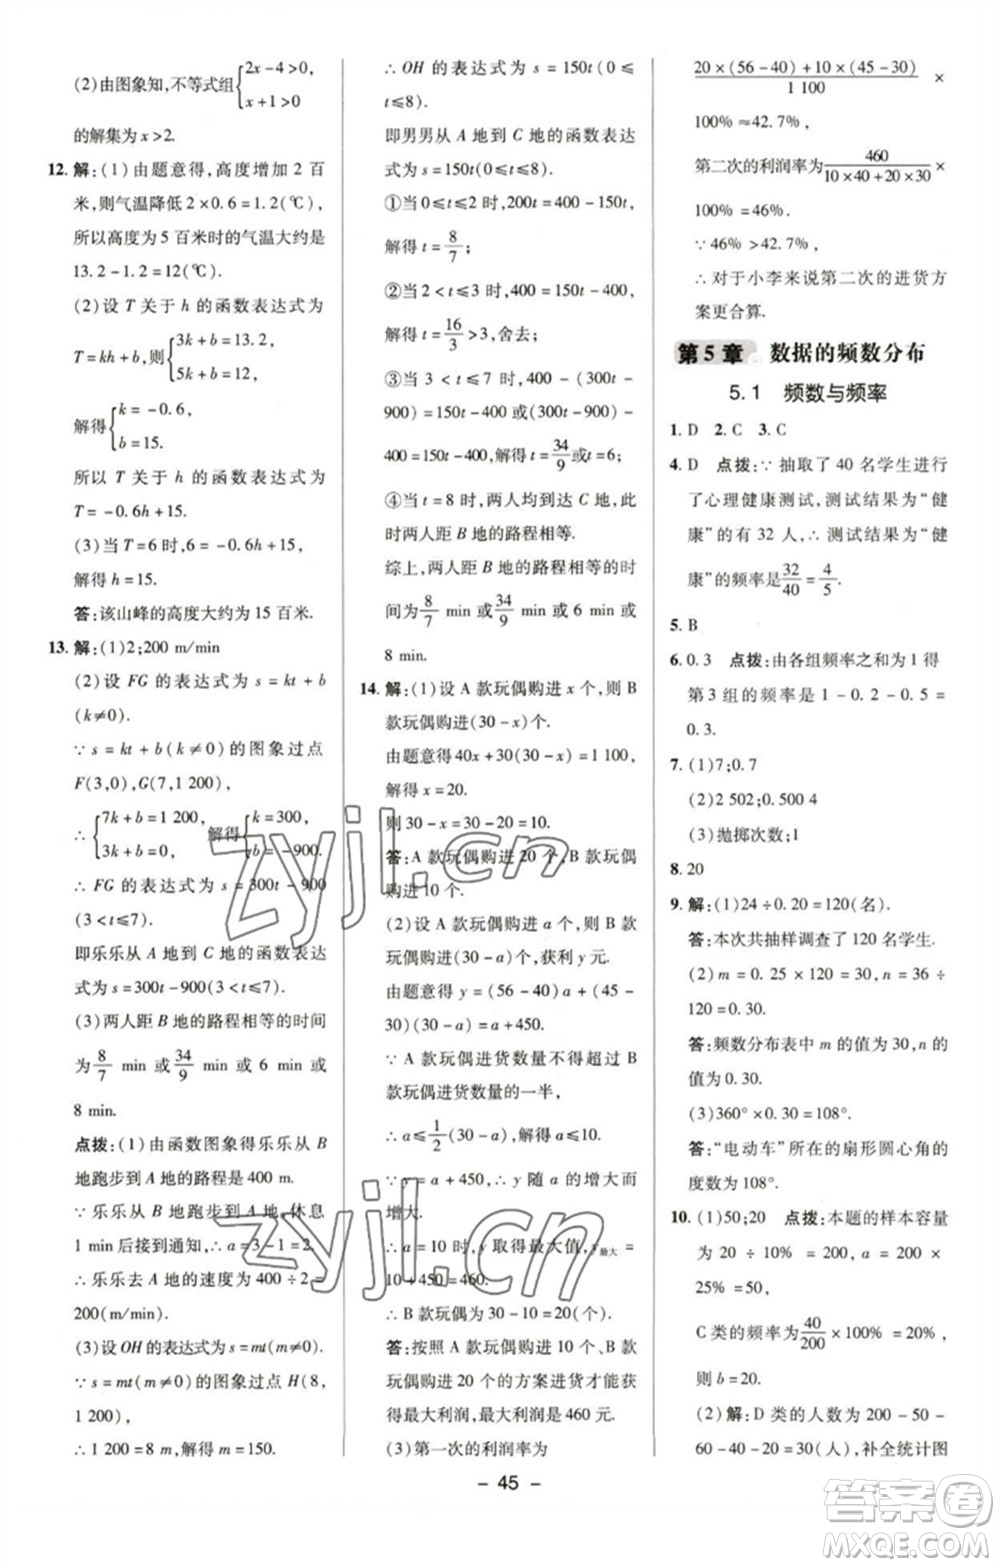 (2)由图象知,不等式组{2x-4>0, x+1>0
的解集为 x>2.
12. 解:(1)由题意得,高度增加 2 百
米,则气温降低 2×0.6=1.2(℃),
所以高度为 5 百米时的气温大约是
13.2-1.2=12(℃).
(2)设 T 关于 h 的函数表达式为
T=kh+b,则{3k+b=12, 5k+b=12,
解得{k=-0.6, b=15.
所以 T 关于 h 的函数表达式为
T=-0.6h+15.
(3)当 T=6 时,6=-0.6h+15,
解得 h=15.
答:该山峰的高度大约为 15 百米.
13. 解:(1)2;200 m/min
(2)设 FG 的表达式为 s=kt+b
(k≠0).
∵s=kt+b(k≠0)的图象过点
F(3,0),G(7,1 200),
∴{7k+b=1 200, 3k+b=0, 解得{k=300, b=-900.
∴FG 的表达式为 s=300t-900
(3<t≤7).
即乐乐从 A 地到 C 地的函数表达
式为 s=300t-900(3<t≤7).
(3)两人距 B 地的路程相等的时间
为 8/7 min 或 34/9 min 或 6 min 或
8 min.
点拨:(1)由函数图象得乐乐从 B
地跑步到 A 地的路程是 400 m.
∵乐乐从 B 地跑步到 A 地,休息
1 min 接到通知,∴a=3-1=2.
∴乐乐去 A 地的速度为 400÷2=
200(m/min).
(3)设 OH 的表达式为 s=mt(m≠0).
∵s=mt(m≠0)的图象过点 H(8,
1 200),
∴1 200=8m,解得 m=150.
∴OH 的表达式为 s=150t(0≤
t≤8).
即男男从 A 地到 C 地的函数表达
式为 s=150t(0≤t≤8).
①当 0≤t≤2 时,200t=400-150t,
解得 t=8/7;
②当 2<t≤3 时,150t-400=400,
解得 t=16/3>3,舍去;
③当 3<t≤7 时,400-(300t-
900)=400-150t 或 300t-900-
400=150t-400,解得 t=34/9 或 t=6;
④当 t=8 时,两人均到达 C 地,此
时两人距 B 地的路程相等.
综上,两人距 B 地的路程相等的时
间为 8/7 min 或 34/9 min 或 6 min 或
8 min.
14. 解:(1)设 A 款玩偶购进 x 个,则 B
款玩偶购进(30-x)个.
由题意得 40x+30(30-x)=1 100,
解得 x=20.
则 30-x=30-20=10.
答:A 款玩偶购进 20 个,B 款玩偶
购进 10 个.
(2)设 A 款玩偶购进 a 个,则 B 款
玩偶购进(30-a)个,获利 y 元.
由题意得 y=(56-40)a+(45-
30)(30-a)=a+450.
∵A 款玩偶进货数量不得超过 B
款玩偶进货数量的一半,
∴a≤1/2(30-a),解得 a≤10.
∵y=a+450,∴y 随 a 的增大而
增大.
∴a=10 时,y 取得最大值,y最大=
10+450=460.
∴B 款玩偶为 30-10=20(个).
答:按照 A 款玩偶购进 10 个、B 款
玩偶购进 20 个的方案进货才能获
得最大利润,最大利润是 460 元.
(3)第一次的利润率为
20×(56-40)+10×(45-30)/1 100×
100%≈42.7%,
第二次的利润率为 460/10×40+20×30×
100%=46%.
∵46%>42.7%,
∴对于小李来说第二次的进货方
案更合算.
第 5 章 数据的频数分布
5.1 频数与频率
1. D 2. C 3. C
4. D 点拨:∵抽取了 40 名学生进行
了心理健康测试,测试结果为“健
康”的有 32 人,∴测试结果为“健
康”的频率是 32/40=4/5.
5. B
6. 0.3 点拨:由各组频率之和为 1 得
第 3 组的频率是 1-0.2-0.5=
0.3.
7. (1)7;0.7
(2)2 502;0.500 4
(3)抛掷次数;1
8. 20
9. 解:(1)24÷0.20=120(名).
答:本次共抽样调查了 120 名学生.
(2)m=0.25×120=30,n=36÷
120=0.30.
答:频数分布表中 m 的值为 30,n 的
值为 0.30.
(3)360°×0.30=108°.
答:“电动车”所在的扇形圆心角的
度数为 108°.
10. (1)50;20 点拨:本题的样本容量
为 20÷10%=200,∴a=200×
25%=50.
C 类的频率为 40/200×100%=20%,
∴b=20.
(2)解:D 类的人数为 200-50-
60-40-20=30(人),补全统计图
- 45 -
zyjl.cn
zyjl.cn
答案圈
MXQE.COM